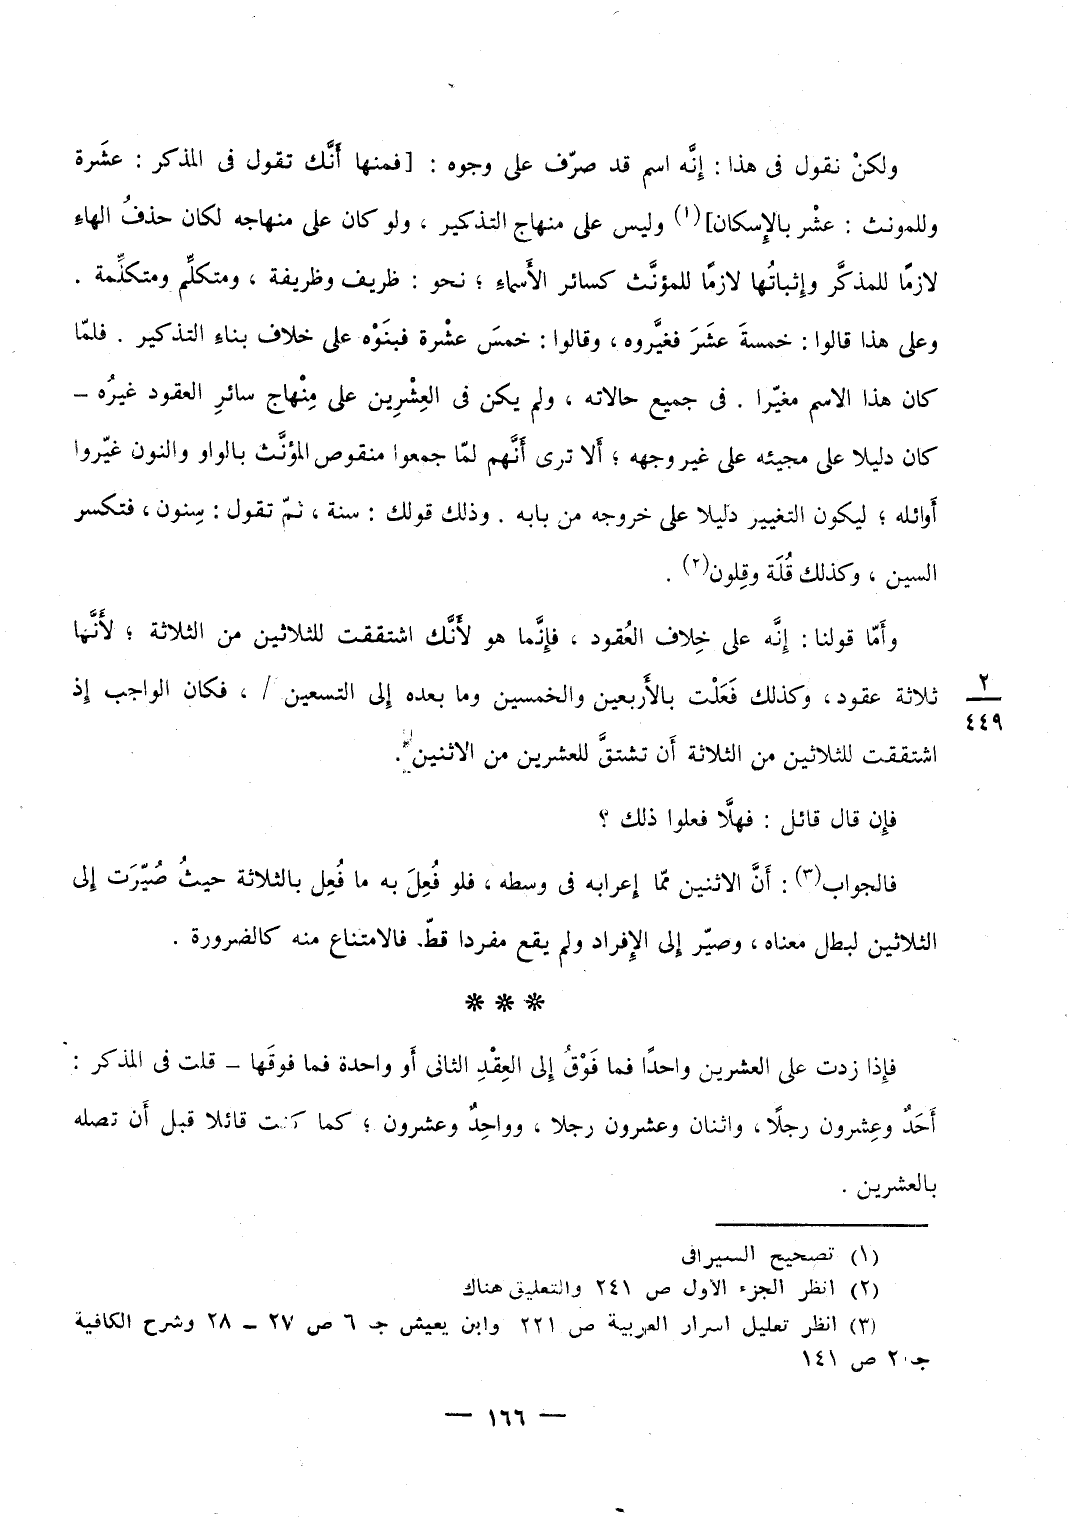 ولكنْ نقول فى هذا : إِنَّه اسم قد صرّف على وجوه : [فمنها أَنَّك تقول فى المذكر : عشَرة
وللمونث : عشْر بالإِسكان](١) وليس على منهاج التذكير ، ولو كان على منهاجه لكان حذفُ الهاءِ
لازمًا للمذكَّر وإِثباتُها لازمًا للمؤنَّث كسائر الأَسماءِ ؛ نحو : ظريف وظريفة ، ومتكلِّم ومتكلِّمة .
وعلى هذا قالوا : خمسةَ عشَرَ فغيَّروه ، وقالوا : خمسَ عشْرة فبنَوْه على خلاف بناءِ التذكير . فلمّا
كان هذا الاسم مغيّرا . فى جميع حالاته ، ولم يكن فى العِشْرِين على مِنْهاج سائرِ العقود غيرُه –
كان دليلا على مجيئه على غير وجهه ؛ أَلا ترى أَنَّهم لمّا جمعوا منقوص المؤنَّث بالواو والنون غيّروا
أَوائله ؛ ليكون التغيير دليلا على خروجه من بابه . وذلك قولك : سنة ، ثمّ تقول : سِنون ، فتكسر
السين ، وكذلك قُلَة وقِلون(٢) .
وأَمّا قولنا : إِنَّه على خِلاف العُقود ، فإِنَّما هو لأَنَّك اشتققت للثلاثين من الثلاثة ؛ لأَنَّها
ثلاثة عقود ، وكذلك فَعَلْت بالأَربعين والخمسين وما بعده إِلى التسعين / ، فكان الواجب إِذ
٢
٤٤٩
اشتققت للثلاثين من الثلاثة أَن تشتقَّ للعشرين من الاثنين .
فإِن قال قائل : فهلَّا فعلوا ذلك ؟
فالجواب(٣) : أَنَّ الاثنين ممّا إِعرابه فى وسطه ، فلو فُعِلَ به ما فُعِل بالثلاثة حيثُ صُيّرَت إِلى
الثلاثين لبطل معناه ، وصيّر إِلى الإِفراد ولم يقع مفردا قطّ. فالامتناع منه كالضرورة .
* * *
فإِذا زدت على العشرين واحدًا فما فَوْقُ إِلى العِقْدِ الثانى أَو واحدة فما فوقَها – قلت فى المذكر :
أَحَدٌ وعِشرون رجلًا ، واثنان وعشرون رجلا ، وواحِدٌ وعشرون ؛ كما كنت قائلا قبل أَن تصله
بالعشرين .
(١) تصحيح السيرافى
(٢) انظر الجزء الاول ص ٢٤١ والتعليق هناك
(٣) انظر تعليل اسرار العربية ص ٢٢١ وابن يعيش جـ ٦ ص ٢٧ – ٢٨ وشرح الكافية
جـ ٢٠ ص ١٤١
— ١٦٦ —